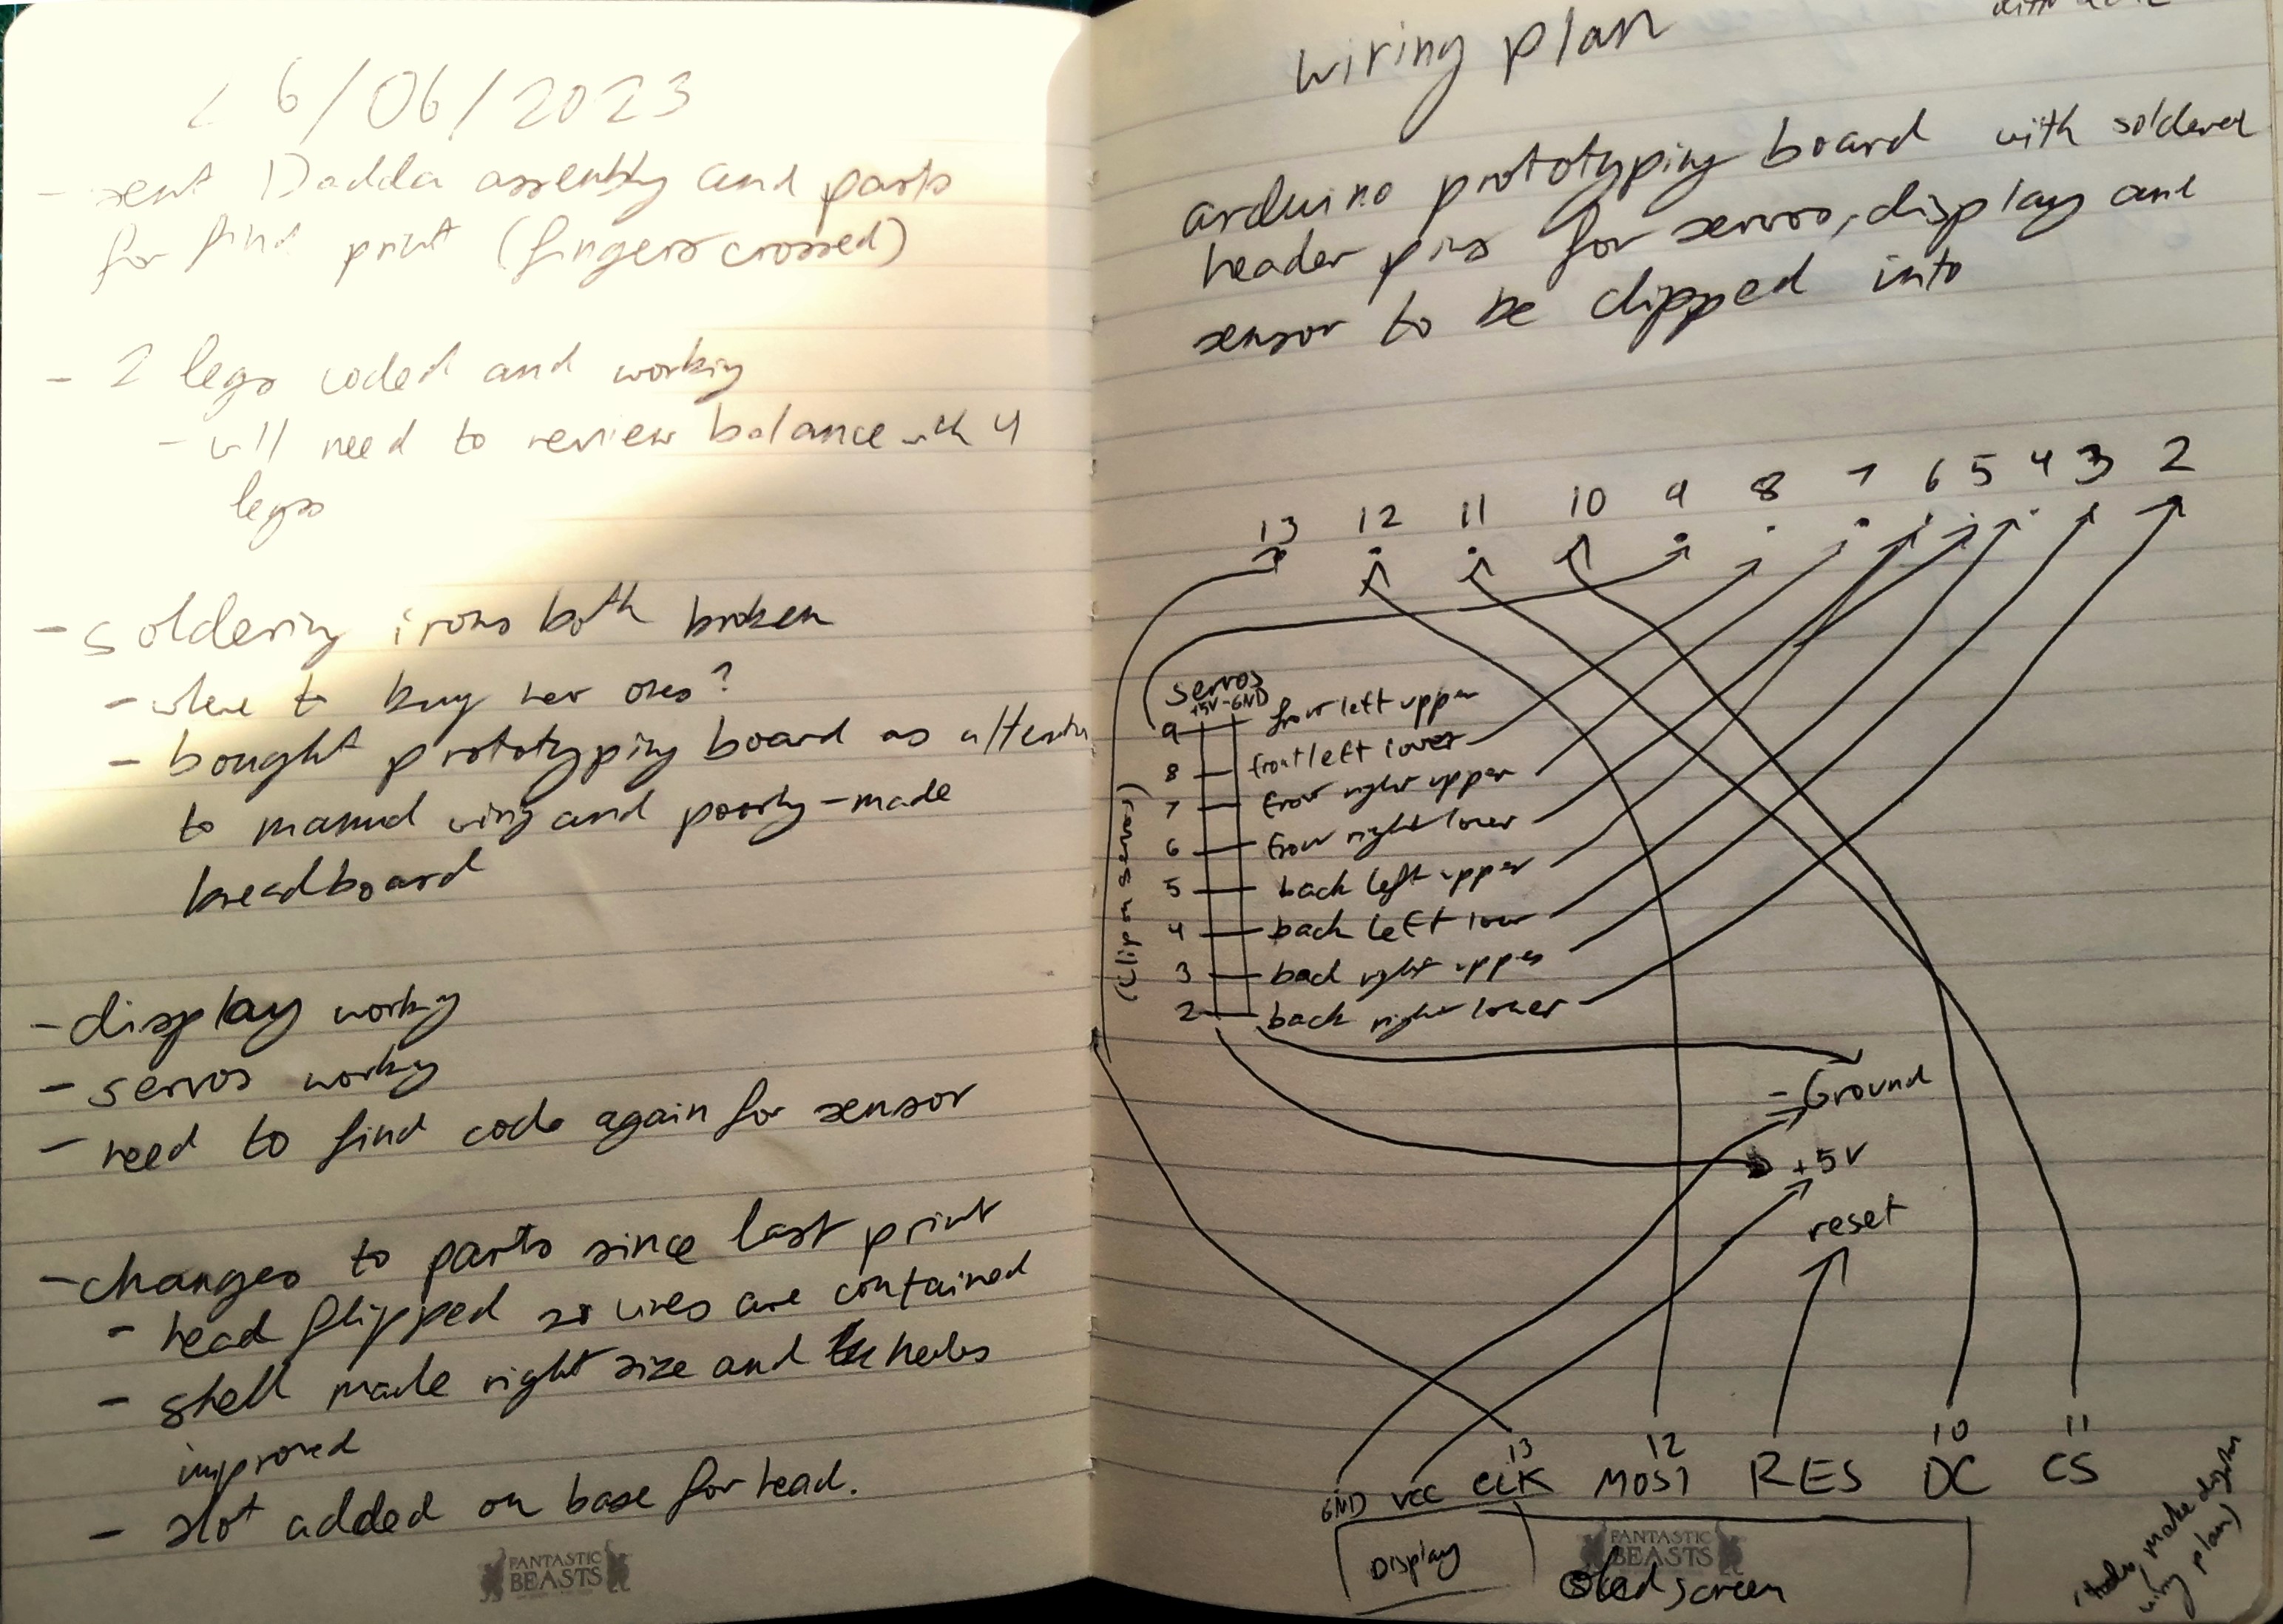 26/06/2023
- sent Dadda assembly and parts
for final print (fingers crossed)
- 2 legs coded and working
- will need to review balance with 4
legs
- soldering irons both broken
- where to buy new ones?
- bought prototyping board as
to manual wiring and poorly-made
breadboard
- display working
- servos working
- need to find code again for sensor
- changes to parts since last print
- head flipped so wires are contained
- shell made right size and holes
improved
- slot added on base for head.
FANTASTIC
BEASTS
wiring plan
arduino prototyping board with soldered
header pins for servos, display and
sensor to be clipped into
13 12 11 10 9 8 7 6 5 4 3 2
servos
+5V -GND
9 front left upper
8 front left lower
7 front right upper
6 front right lower
5 back left upper
4 back left lower
3 back right upper
2 back right lower
(clip on servos)
- Ground
+5V
reset
13 12 10 11
GND VCC CLK MOSI RES DC CS
Display
FANTASTIC
BEASTS
oled screen
(todo, make digram
wiring plan)